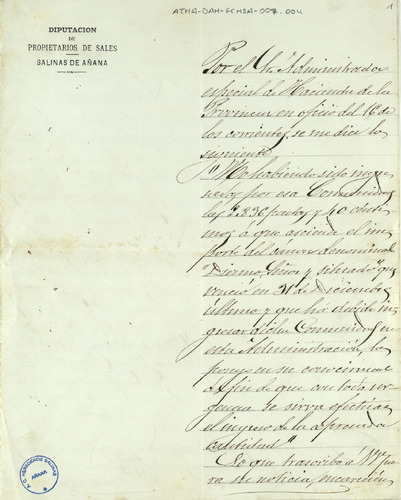 ATHA-DAH-FCHSA-057.004
1
DIPUTACION
DE
PROPIETARIOS DE SALES
SALINAS DE AÑANA
Por el Sr. Administrador
especial de Hacienda de la
Provincia en oficio del 16 de
los corrientes, se me dice lo
siguiente
"No habiendo sido ingre
sadas por esa Comunidad
las 2.836 pesetas y 40 cénti
mos a que asciende el im
porte del cánon denominado
"Diezmo, Señor y situado" que
venció en 31 de Diciembre
último y que há debido in
gresar dicha Comunidad en
esta Administración, lo
pongo en su conocimiento
a fin de que con toda ur
gencia se sirva efectuar
el ingreso de la expresada
cantidad"
Lo que trascribo á V. pa
ra su noticia, encareciendo
T.C. HEREDEROS SALINAS
AÑANA